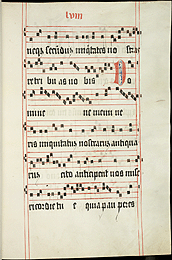 lviii
neqz secundum iniquitates no stras
retri buas no bis Do
mine ne memi ne
ris iniquitatū nostrarum antiqua
rum cito anticipent nos mise
ricordie tu e quia pau peres